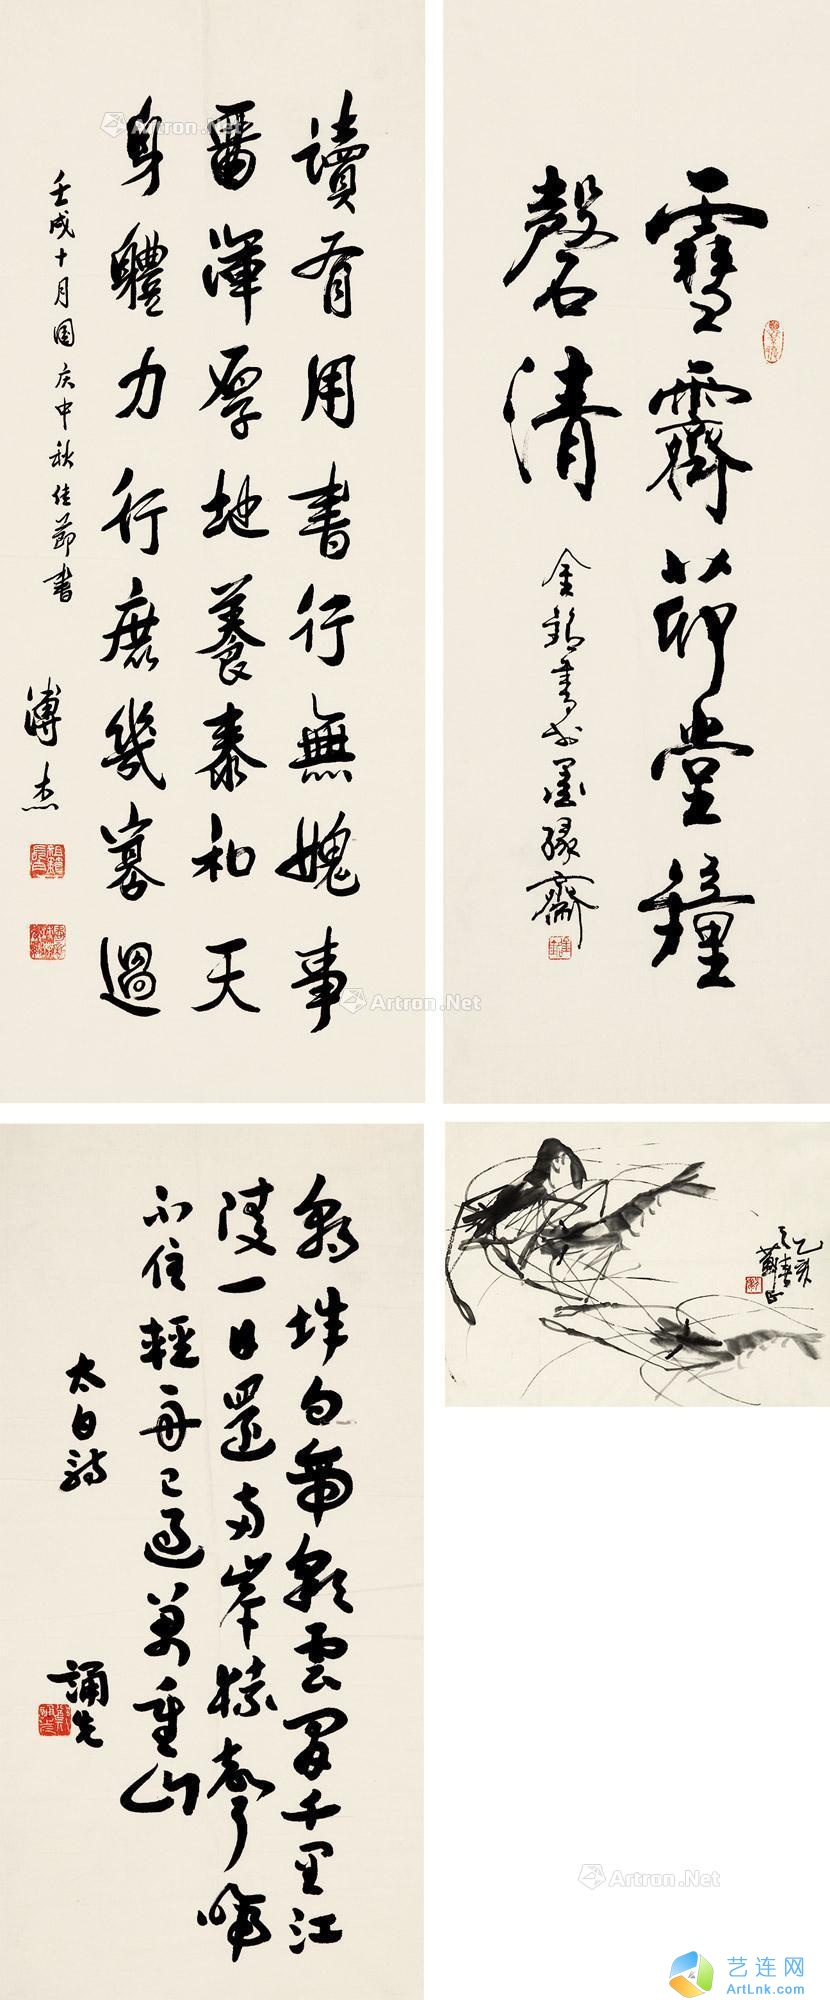 讀有用書行無媿事
留渾厚地養泰和天
身體力行庶幾寡過
壬戌十月国庆中秋佳節書
溥杰
雪霽茆堂鐘
磬清
書於墨缘齋
朝辞白帝彩雲間千里江
陵一日還兩岸猿聲啼
不住輕舟已過萬重山
太白詩
誦先
乙亥
之春
Artron.Net
Artron.Net
Artron.Net
Artron.Net
艺连网
ArtLnk.com